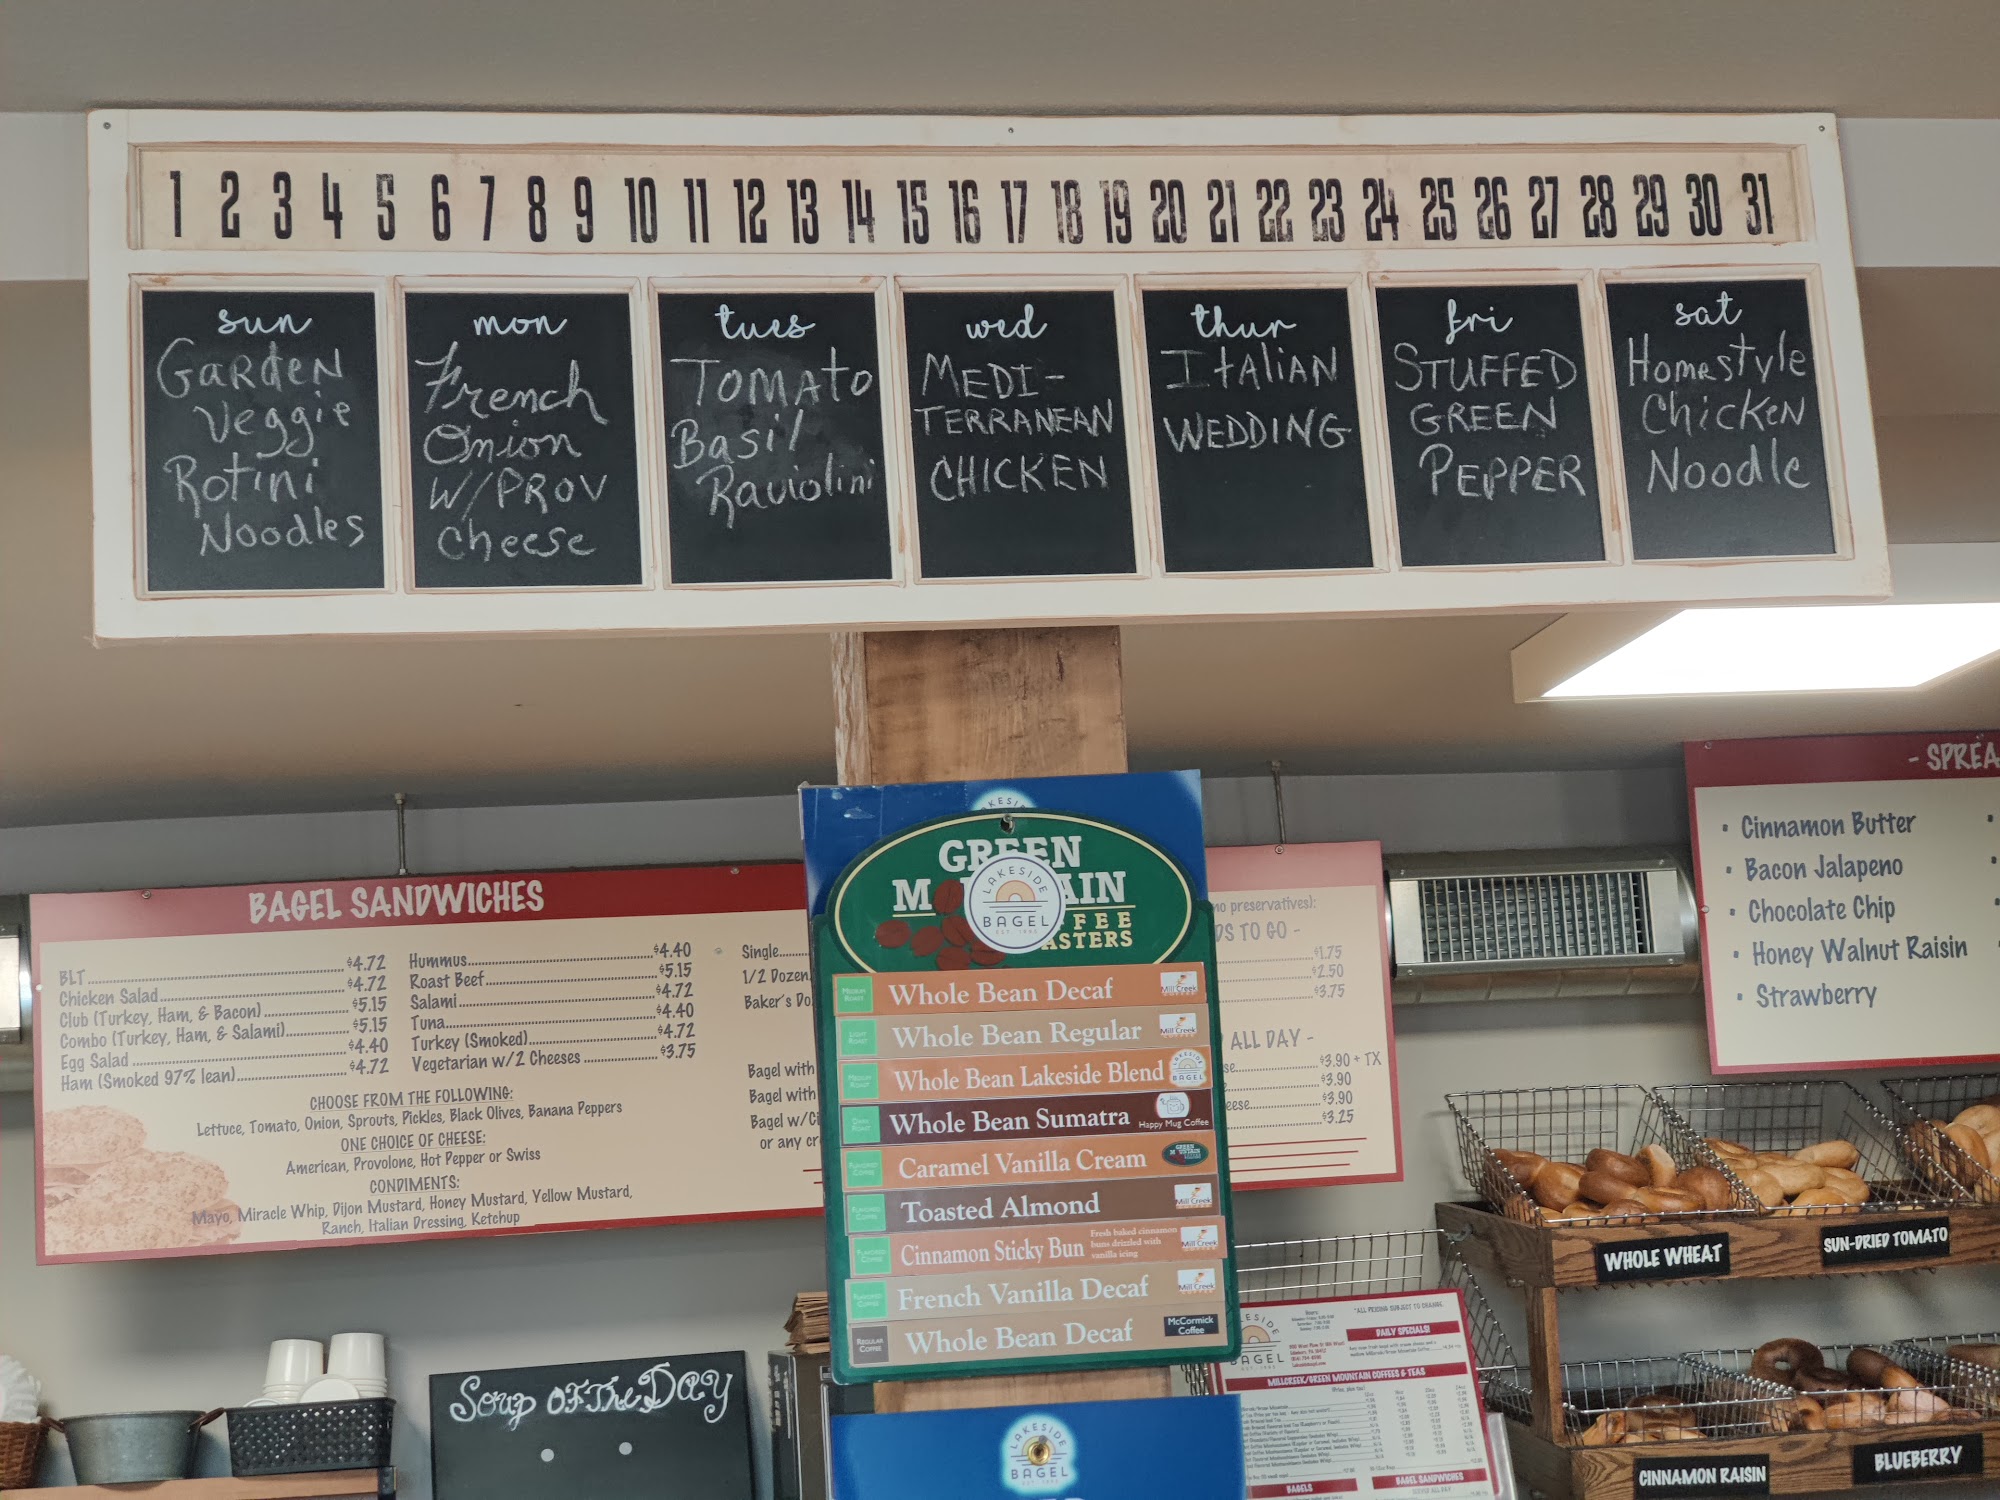 1 2 3 4 5 6 7 8 9 10 11 12 13 14 15 16 17 18 19 20 21 22 23 24 25 26 27 28 29 30 31
sun
Garden
Veggie
Rotini
Noodles
mon
French
Onion
W/PROV
cheese
tues
TOMATO
Basil
Raviolini
wed
MEDI-
TERRANEAN
CHICKEN
thur
ITALIAN
WEDDING
fri
STUFFED
GREEN
PEPPER
sat
Homestyle
Chicken
Noodle
BAGEL SANDWICHES
BLT $4.72
Chicken Salad $4.72
Club (Turkey, Ham, & Bacon) $5.15
Combo (Turkey, Ham, & Salami) $5.15
Egg Salad $4.40
Ham (Smoked 97% lean) $4.72
Hummus $4.40
Roast Beef $5.15
Salami $4.72
Tuna $4.40
Turkey (Smoked) $4.72
Vegetarian w/2 Cheeses $3.75
CHOOSE FROM THE FOLLOWING:
Lettuce, Tomato, Onion, Sprouts, Pickles, Black Olives, Banana Peppers
ONE CHOICE OF CHEESE:
American, Provolone, Hot Pepper or Swiss
CONDIMENTS:
Mayo, Miracle Whip, Dijon Mustard, Honey Mustard, Yellow Mustard,
Ranch, Italian Dressing, Ketchup
Single
1/2 Dozen
Baker's Do
Bagel with
Bagel with
Bagel w/Ci
or any cr
GREEN
LAKESIDE
BAGEL
EST. 1982
Whole Bean Decaf
Whole Bean Regular
Whole Bean Lakeside Blend
Whole Bean Sumatra
Happy Mug Coffee
Caramel Vanilla Cream
Toasted Almond
Cinnamon Sticky Bun
Fresh baked cinnamon
buns drizzled with
vanilla icing
French Vanilla Decaf
Whole Bean Decaf
REGULAR
COFFEE
McCormick
Coffee
no preservatives):
DS TO GO -
$1.75
$2.50
$3.75
ALL DAY -
$3.90 + TX
$3.90
eese $3.90
$3.25
- SPREA
Cinnamon Butter
Bacon Jalapeno
Chocolate Chip
Honey Walnut Raisin
Strawberry
WHOLE WHEAT
SUN-DRIED TOMATO
CINNAMON RAISIN
BLUEBERRY
Soup OF The DAY
LAKESIDE
BAGEL
*ALL PRICING SUBJECT TO CHANGE
DAILY SPECIALS!
MILLCREEK/GREEN MOUNTAIN COFFEES & TEAS
BAGELS
BAGEL SANDWICHES